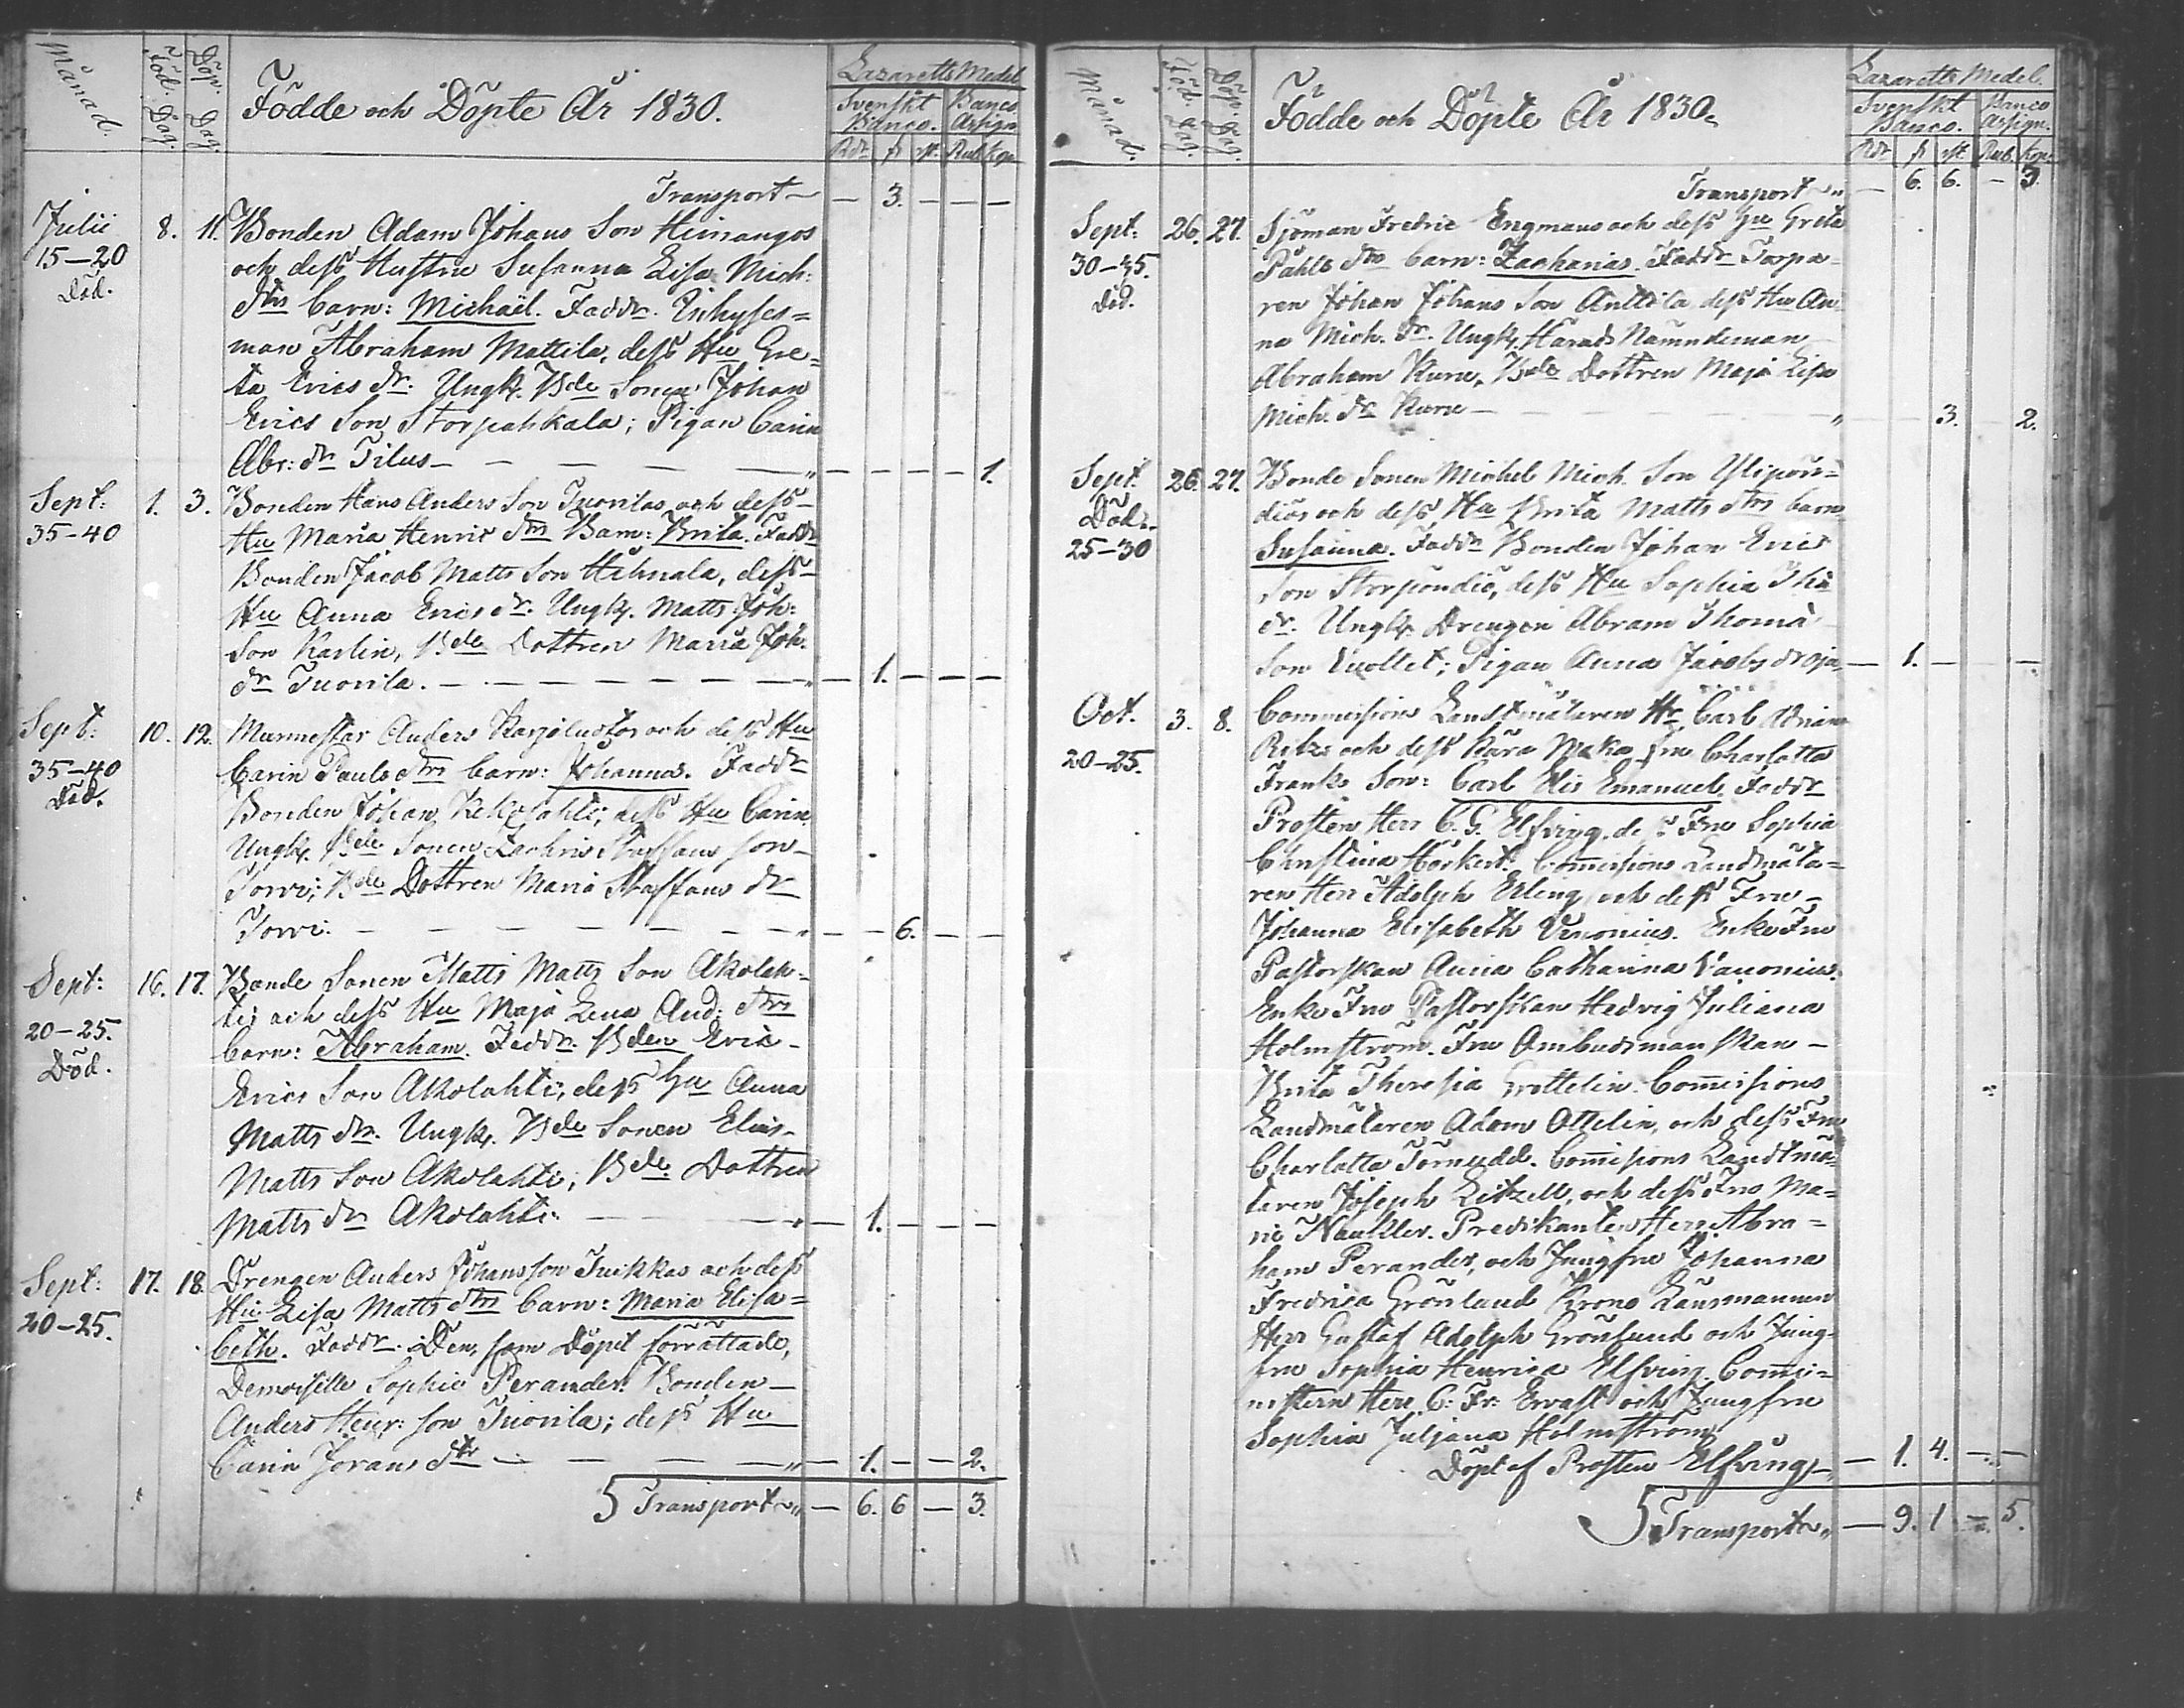 Månad. Föd. Dag. Döp. Dag. Födde och Döpte År 1830. Lazaretts Medel
Svenskt Banco. Banco Assign.
Rdr ß rst. Rub. Kop.
Transport — 3. — — —
Julii 8. 11. Bonden Adam Johans Son Himangos
15—20 och dess Hustru Susanna Lisa Mich:
Död. drs barn: Michaël. Faddr. Inhyses=
man Abraham Mattila, dess Hu Gre=
ta Erics dr. Ungk. Bde Sonen Johan
Erics Son Storpahkala; Pigan Carin
Abr: dr Tilus — — — — 1.
Sept: 1. 3. Bonden Hans Anders Son Tuorilas och dess
35—40 Hu Maria Henric drs Barn: Brita. Faddr
Bonden Jacob Matts Son Hihnala, dess
Hu Anna Erics dr. Ungk. Matts Joh:
Son Karlin, Bde Dottren Maria Joh.
dr Tuorila. — — — 1. — — —
Sept: 10. 12. Anders och dess Hu
35—40 Carin Pauls drs barn: Johannes. Faddr
Död. Bonden Johan Kekolahti; dess Hu Carin
Ungk. Bde Sonen Zachris Staffans son
Torvi; Bde Dottren Maria Staffans dr
Torvi. — — — 6. — —
Sept: 16. 17. Bonde Sonen Matts Matts Son Akolah=
20—25. tis och dess Hu Maja Lena And: drs
Död. barn: Abraham. Faddr. Bden Eric
Erics Son Akolahti, dess Hu Anna
Matts dr. Ungk. Bde Sonen Elias
Matts Son Akolahti; Bde Dottren
Matts dr Akolahti. — — 1. — — —
Sept: 17. 18. Drengen Anders Johansson Tuikkas och dess
20—25. Hu Lisa Matts drs barn: Maria Elisa=
beth. Faddr. Den, som Döpet förrättade,
Demoiselle Sophie Perander. Bonden
Anders Henr: son Tuorila; dess Hu
Carin Jorans dtr — — 1. — — 2.
5 Transport — 6. 6 — 3.
Månad. Föd. Dag. Döp. Dag. Födde och Döpte År 1830. Lazaretts Medel.
Svenskt Banco. Banco Assign.
Rdr ß rst. Rub. Kop.
Transport — 6. 6. — 3
Sept: 26. 27. Sjöman Fredric Engmans och dess Hu Greta
30—35. Pahls drs barn: Zacharias. Faddr Torpa=
Död. ren Johan Johans Son Anttila dess Hu An
na Mich. dr. Ungk. Härads Nämndeman
Abraham Kuru, Bde Dottren Maja Lisa
Mich: dr Kuru — — 3. 2.
Sept. 26. 27. Bonde Sonen Michel Mich. Son Ylipön=
Död. diös och dess Hu Brita Matts drs barn
25—30 Susanna. Faddr Bonden Johan Erics
Son Storpöndiö, dess Hu Sophia Tho
dr. Ungk. Drengen Abram Thoma
Son Vuollet; Pigan Anna Jacobs dr Oja — 1. — —
Oct. 3. 8. Commissions Landtmätaren Hr Carl Adrian
20—25. Ritz och dess kära Maka Fru Charlotta
Franks Son: Carl Elis Emanuel. Faddr
Prosten Herr C. G. Elfving, dess Fru Sophia
Christina Höckert. Commissions Landtmäta=
ren Herr Adolph Erling och dess Fru
Johanna Elisabeth Vanonius. Enke Fru
Pastorskan Anna Catharina Vanonius.
Enke Fru Pastorskan Hedvig Juliana
Holmström. Fru Ombudsmanskan —
Brita Theresia Commissions
Landmätaren Adam Ottelin, och dess Fru
Charlotta Törnudd. Commissions Landtmä=
taren Joseph Litzell, och dess Fru Ma=
rie Naukler. Predikanten Herr Abra=
ham Perander, och Jungfru Johanna
Fredrica Grönlund Krono Länsmannen
Herr Gustaf Adolph Grönlund och Jung=
fru Sophia Henrica Elfving. Commi=
nistern Herr C: Fr: Ervast och Jungfru
Sophia Juljana Holmström
Döpt af Prosten Elfving — 1. 4. — —
5 Transport — 9. 1 — 5.